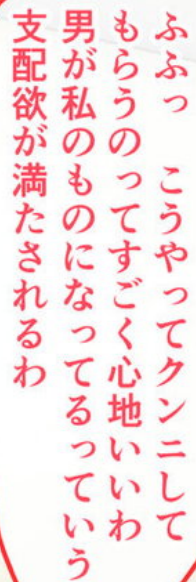 ふふっ　こうやってクンニして
もらうのってすごく心地いいわ
男が私のものになってるっていう
支配欲が満たされるわ